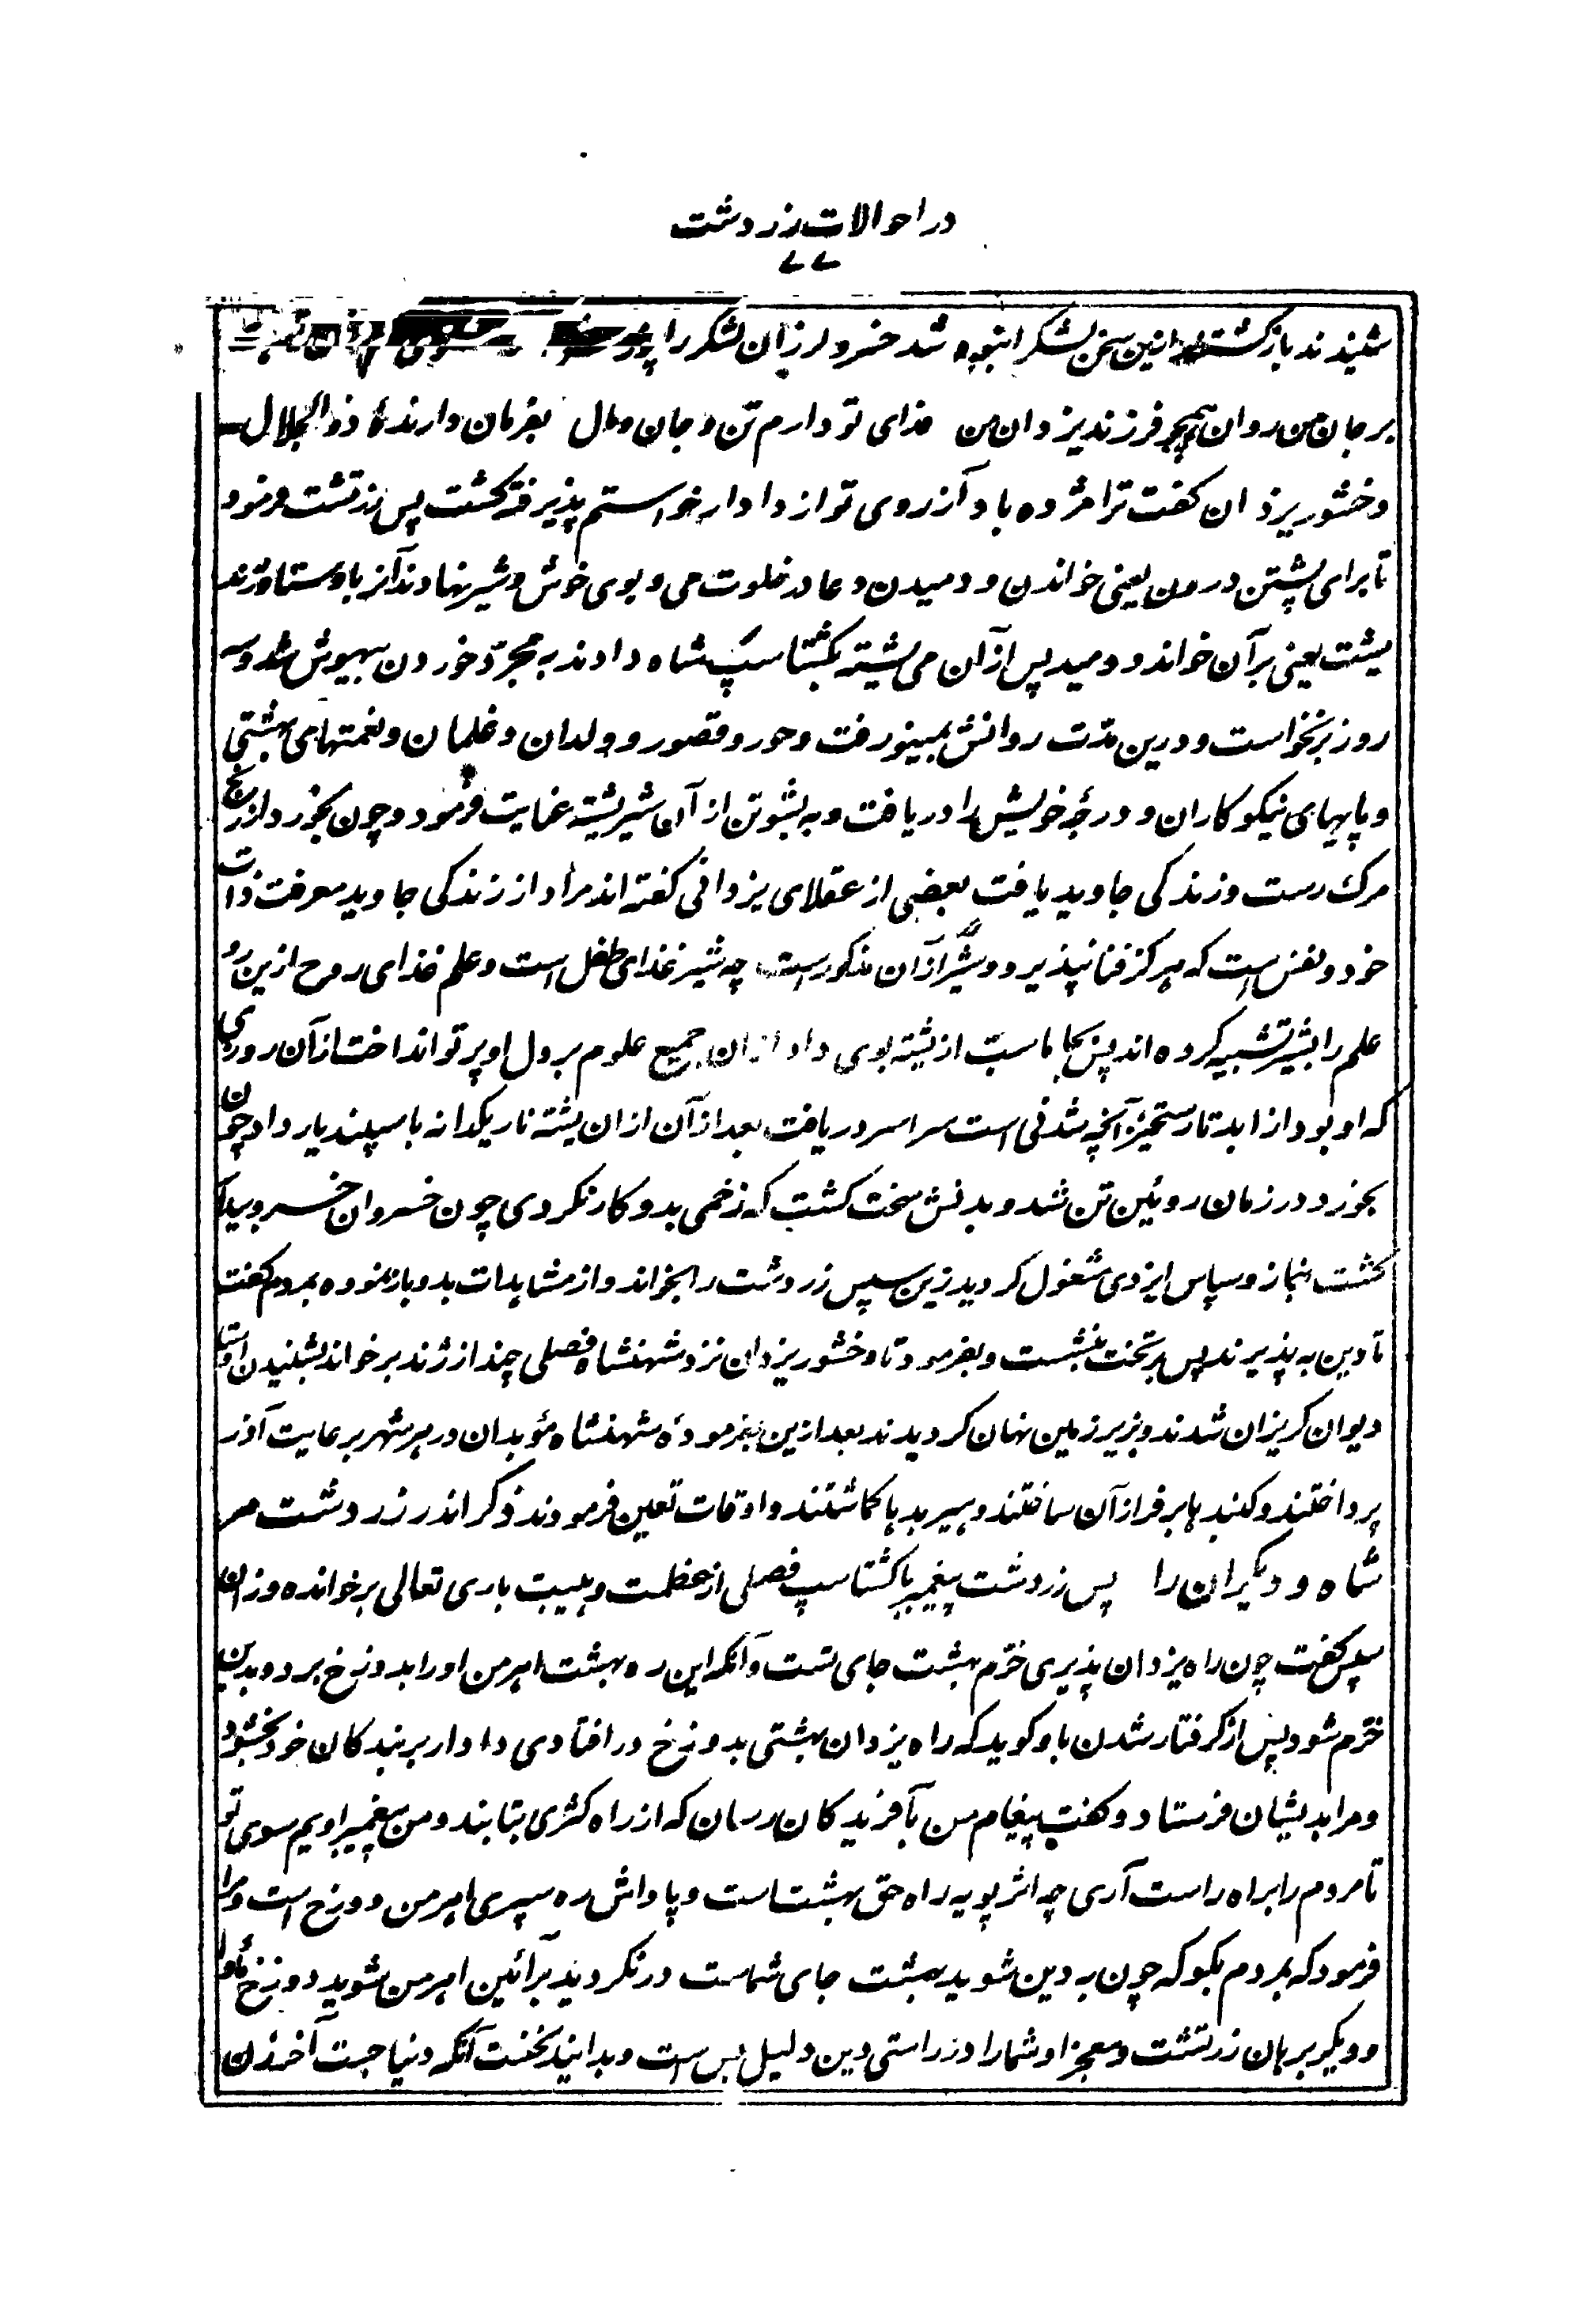 در احوالات زردشت
۷۷
شنیدند بازکشتند ازین سخن لشکر انبوه شد خسرو لرزان لشکر را
بر جان من روان همچو فرزند یزدان من فدای تو دارم تن و جان و مال بفرمان دارندهٔ ذوالجلال
وخشور یزدان کفت ترا مژده باد آرزوی تو از دادار خواستم پذیرفته کشت پس زرتشت فرمود
تا برای یشتن درون یعنی خواندن و دمیدن دعا در خلوت می و بوی خوش و شیر نهادند آنرا باوستا و زند
یشت یعنی بر آن خواند و دمید پس از آن می یشته بکشتاسپ شاه دادند به مجرد خوردن بیهوش شد و سه
روز برنخواست و درین مدت روانش بمینو رفت و حور و قصور و ولدان و غلمان و نعمتهای بهشتی
و پایهای نیکوکاران و درجهٔ خویش را دریافت و به پشوتن از آن شیر یشته عنایت فرمود و چون بخورد از رنج
مرک رست و زندکی جاوید یافت بعضی از عقلای یزدانی کفته اند مراد از زندکی جاوید معرفت ذات
خود و نفس است که هرکز فنا نپذیرد و شیر از آن مذکور است چه شیر غذای طفل است و علم غذای روح ازین رو
علم را بشیر تشبیه کرده اند پس بجاماسپ از یشته بوی داد از آن جمیع علوم بر دل او پرتو انداخت از آن روزی
که او بود از ابد تا رستخیز آنچه شدنی است سراسر دریافت بعد از آن از ان یشته نار یکدانه باسپندیار داد چون
بخورد در زمان روئین تن شد و بدنش سخت کشت که زخمی بدو کار نکردی چون خسروان خسرو بیدار
کشت بنماز و سپاس ایزدی مشغول کردید زین سپس زردشت را بخواند و از مشاهدات بدو باز نموده بمردم کفت
تا دین به پذیرند پس بر تخت بنشست و بفرمود تا وخشور یزدان نزد شهنشاه فصلی چند از ژند برخواند بشنیدن اوستا
دیوان کریزان شدند و بزیر زمین نهان کردیدند بعد ازین بفرمودهٔ شهنشاه مؤبدان در هر شهر برعایت آذر
پرداختند و کنبدها بر فراز آن ساختند و هیربدها کماشتند و اوقات تعین فرمودند ذکر اندرز زردشت مر
شاه و دیکران را پس زردشت پیغمبر با کشتاسپ فصلی از عظمت و هیبت باری تعالی برخوانده وزان
سپس کفت چون راه یزدان پذیری خرم بهشت جای تست و آنکه این ره بهشت اهرمن او را بدوزخ برد و بدین
خرم شود پس از کرفتار شدن با و کوید که راه یزدان بهشتی بدوزخ در افتادی دادار بر بندکان خود بخشود
و مرا بدیشان فرستاد و کفت پیغام من بآفریدکان رسان که از راه کژی بتابند و من پیغمبر اویم سوی تو
تا مردم را براه راست آری چه اثر پویه راه حق بهشت است و پاداش ره سپری اهرمن دوزخ است و مرا
فرمود که بمردم بکو که چون به دین شوید بهشت جای شماست ور نکردید بر آئین اهرمن شوید دوزخ مأوا
و دیکر برهان زرتشت و معجز او شما را در راستی دین دلیل بس است و بدانید نخست آنکه دنیا جست آخر زن